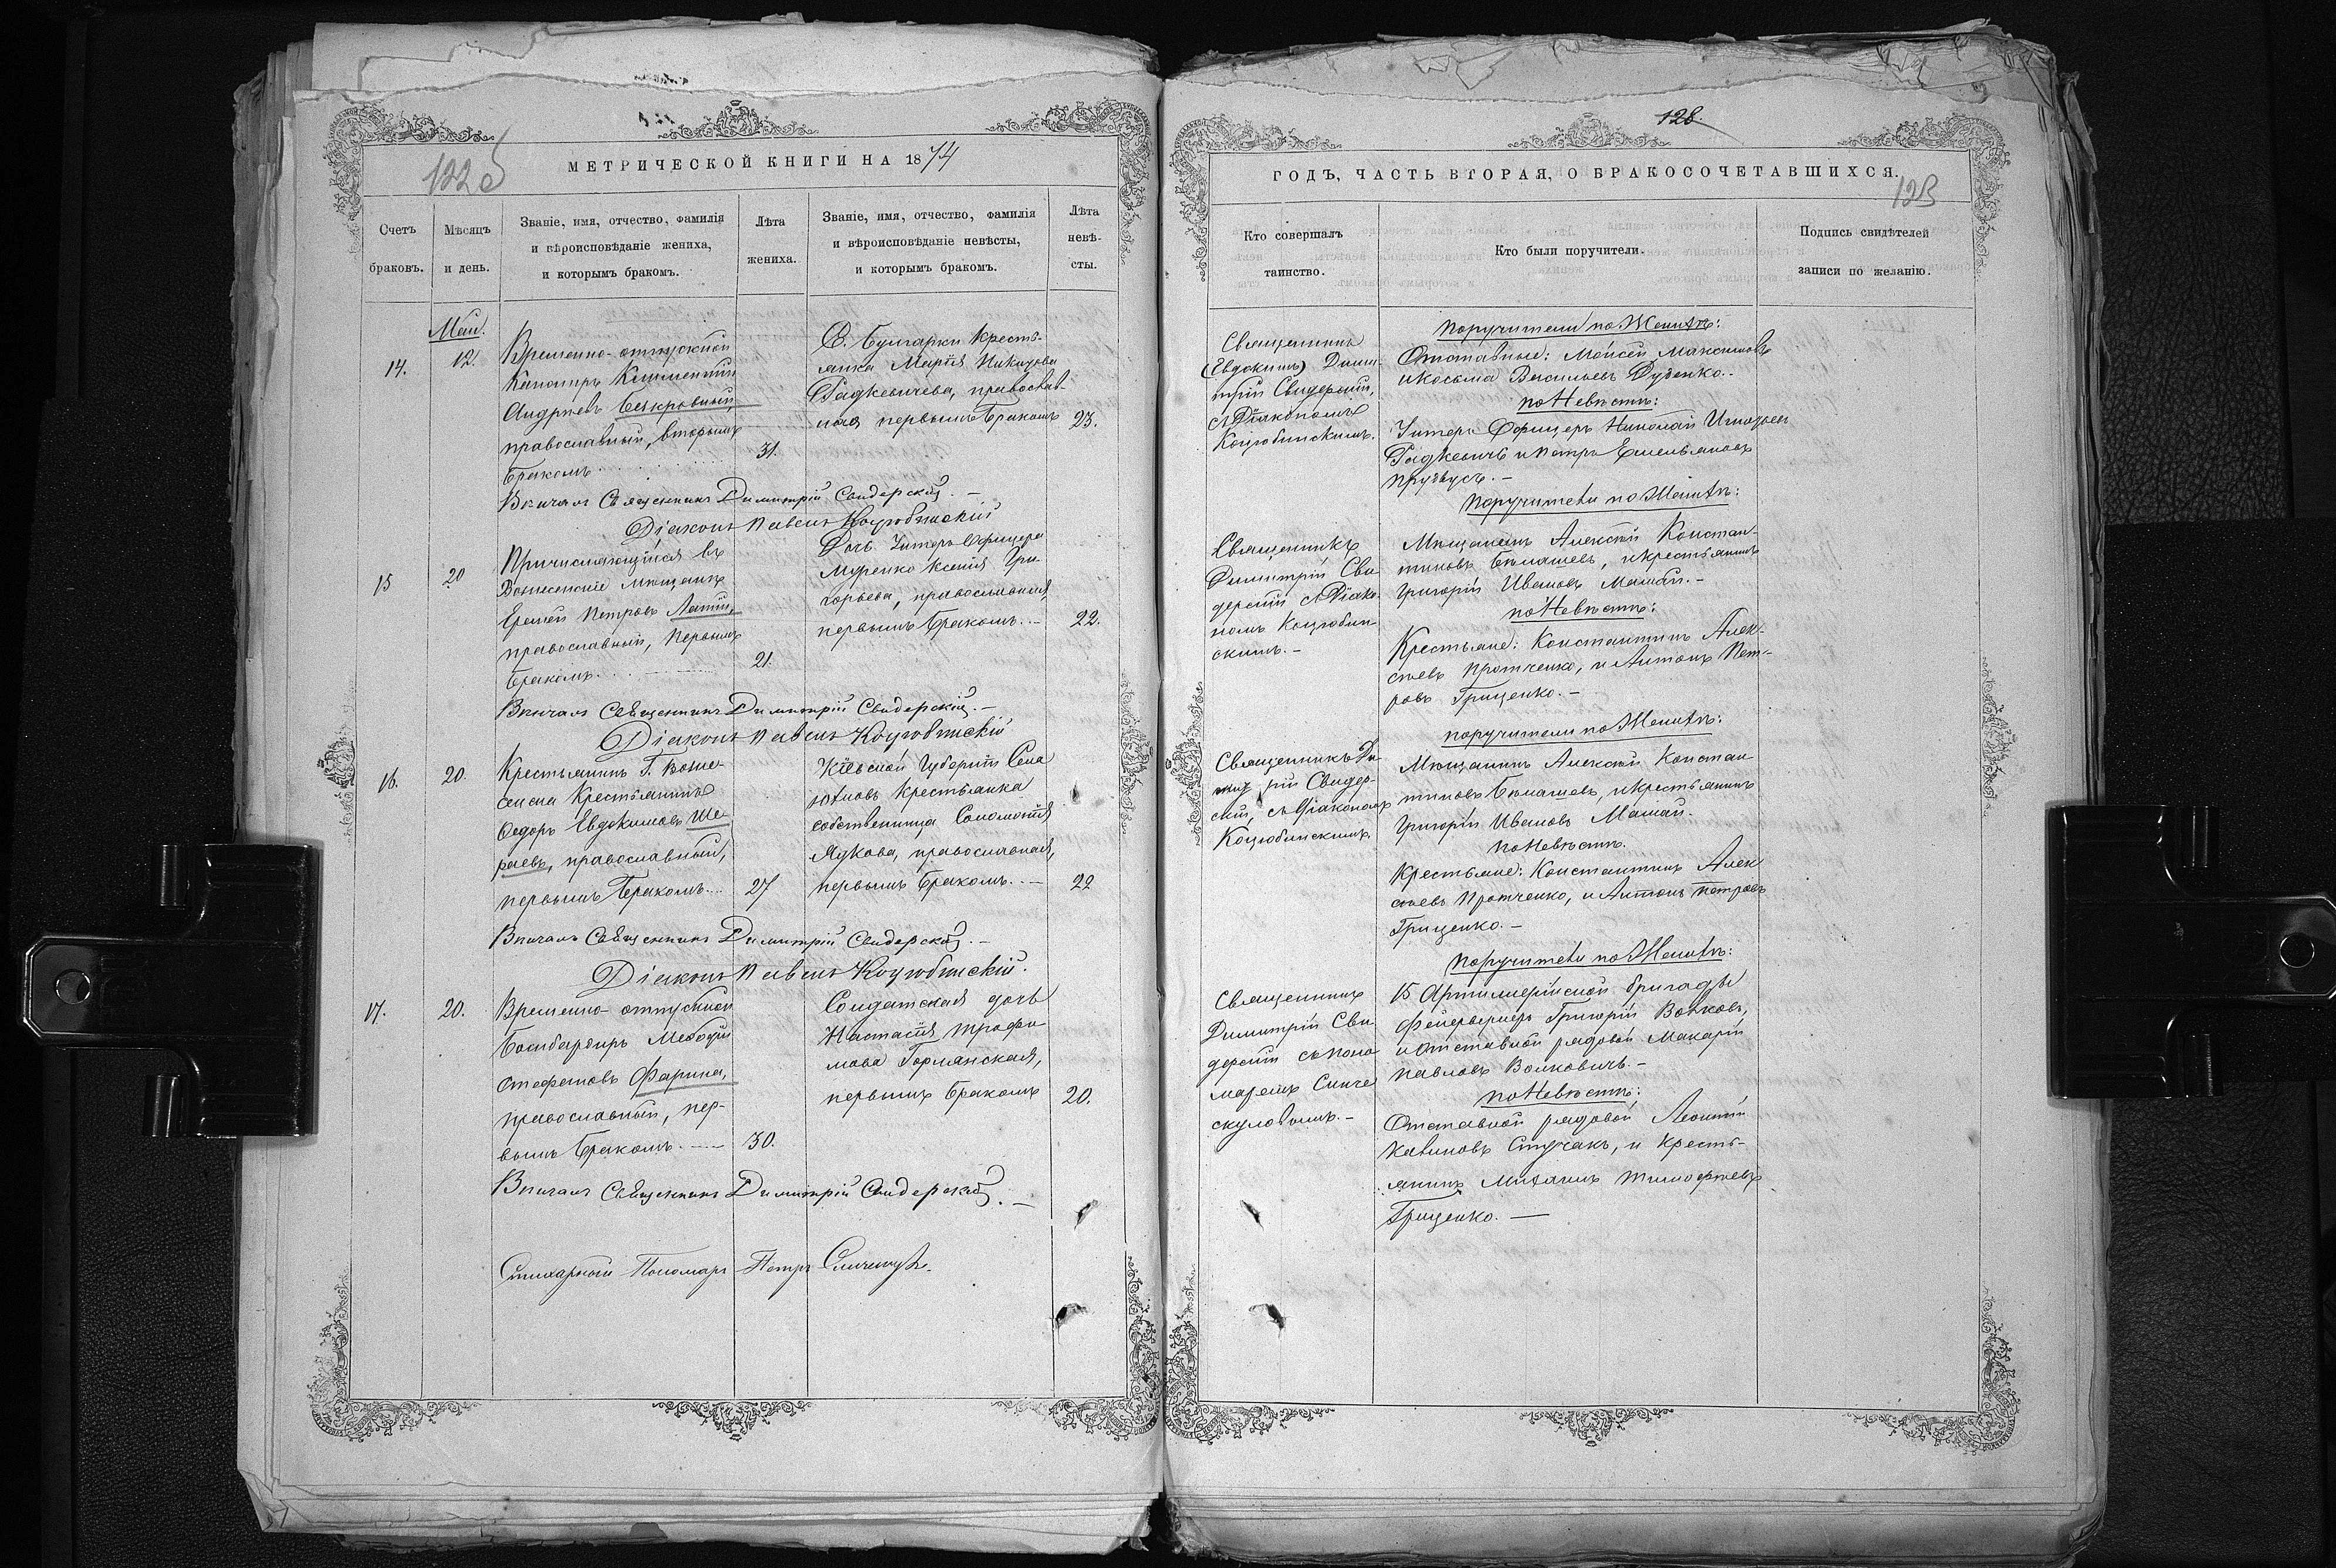 122об
МЕТРИЧЕСКОЙ КНИГИ НА 1874
Счетъ браковъ.
Мѣсяцъ и день.
Званіе, имя, отчество, фамилія и вѣроисповѣданіе жениха, и которымъ бракомъ.
Лѣта жениха.
Званіе, имя, отчество, фамилія и вѣроисповѣданіе невѣсты, и которымъ бракомъ.
Лѣта невѣ- сты.
Маи.
14.
12.
Временно-отпускной
Канониръ Климентій
Андреевъ Безкровный,
православный, вторымъ
бракомъ
31.
С. Булгарки Кресть-
янка Марія
Гаджевичева, православ-
ная первымъ бракомъ
23.
Вѣнчалъ Священникъ Димитрій Свидерскій. —
Діаконъ Павелъ Коцюбинскій
15
20
Причисляющійся въ
Вознесенскіе Мѣщане
Еремей Петровъ
православный, первымъ
бракомъ.
21.
Дочь Унтеръ Офицера
Ксенія Гри-
горьева, православная,
первымъ бракомъ. —
22.
Вѣнчалъ Священникъ Димитрій Свидерскій. —
Діаконъ Павелъ Коцюбинскій
16.
20.
Крестьянинъ Г. Возне-
сенска Крестьянинъ
Ѳедоръ Евдокимовъ Ше-
раевъ, православный,
первымъ бракомъ.
27
Кіевской Губерніи Села
Крестьянка
собственница Соломонія
Яцкова, православная,
первымъ бракомъ. —
22
Вѣнчалъ Священникъ Димитрій Свидерскій. —
Діаконъ Павелъ Коцюбинскій.
17.
20.
Временно-отпускной
Бомбардиръ Меѳодій
Стефановъ Фарина,
православный, пер-
вымъ бракомъ. —
30.
Солдатская дочь
Настасія Трофи-
мова Горлянская,
первымъ бракомъ
20.
Вѣнчалъ Священникъ Димитрій Свидерскій. —
Стихарный Пономарь Петръ
128.
ГОДЪ, ЧАСТЬ ВТОРАЯ, О БРАКОСОЧЕТАВШИХСЯ.
123
Кто совершалъ таинство.
Кто были поручители.
Подпись свидѣтелей записи по желанію.
Священникъ
(Евдокимъ) Дими-
трій Свидерскій,
съ Діакономъ
Коцюбинскимъ.
Поручители по Женихѣ:
Отставные: Моисей Максимовъ
и Косьма Васильевъ Дуденко.
по Невѣстѣ:
Унтеръ Офицеръ Николай
Гаджевичъ и Петръ Емельяновъ
Поручители по Женихѣ:
Священникъ
Димитрій Сви-
дерскій съ Діако-
номъ Коцюбин-
скимъ. —
Мѣщанинъ Алексѣй Констан-
тиновъ Бѣлашевъ, и крестьянинъ
Григорій Ивановъ Мамай. —
по Невѣстѣ:
Крестьяне: Константинъ Алек-
сѣевъ Протченко, и Антонъ Пет-
ровъ Гриценко. —
поручители по Женихѣ:
Священникъ Ди-
митрій Свидер-
скій, съ Діакономъ
Коцюбинскимъ.
Мѣщанинъ Алексѣй Констан-
тиновъ Бѣлашевъ, и крестьянинъ
Григорій Ивановъ Мамай.
по Невѣстѣ.
Крестьяне: Константинъ Алек
сѣевъ Протченко, и Антонъ Петровъ
Гриценко. —
Поручители по Женихѣ:
Священникъ
Димитрій Сви
дерскій съ поно-
маремъ Синче
скуловымъ. —
15 Артиллерійской бригады
Фейерверкеръ Григорій Волковъ,
и отставной рядовой Макарій
Павловъ Волковичъ. —
по Невѣстѣ:
Отставной рядовой Леонтій
Стусакъ, и кресть-
янинъ Михаилъ Тимофѣевъ
Гриценко. —